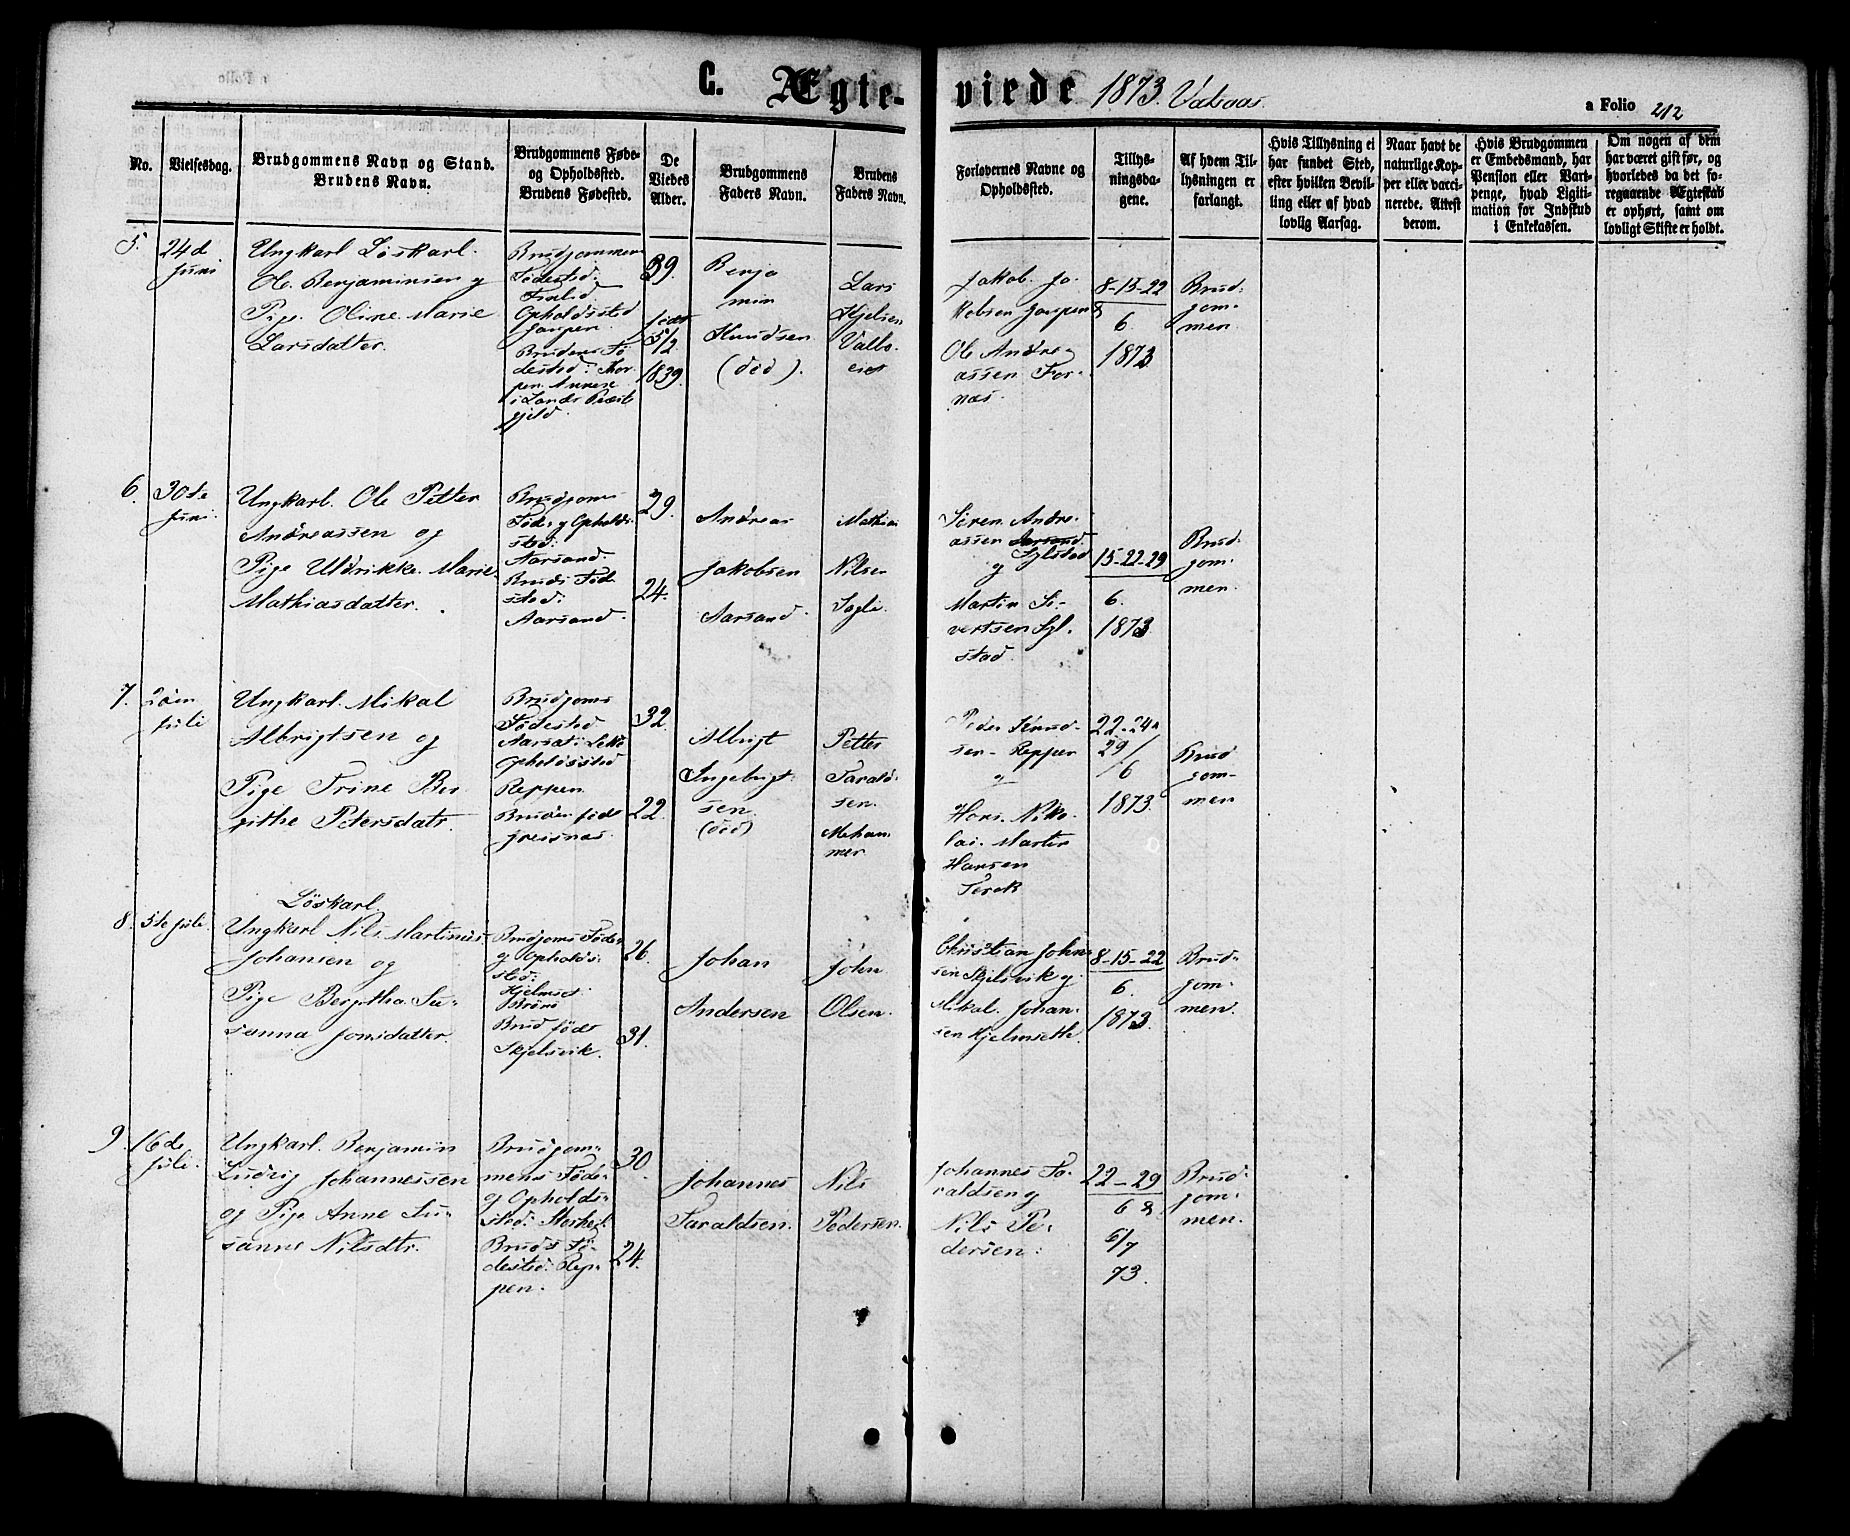 C. Ægte-
viede 1873. Valsaas.
a Folio 212
No.
Vielsesdag.
Brudgommens Navn og Stand.
Brudens Navn.
Brudgommens Føde-
og Opholdssted.
Brudens Fødested.
De
Viedes
Alder.
Brudgommens
Faders Navn.
Brudens
Faders Navn.
Forlovernes Navne og
Opholdssted.
Tillys-
ningsda-
gene.
Af hvem Til-
lysningen er
forlangt.
Hvis Tillysning ei
har fundet Sted,
efter hvilken Bevil-
ling eller af hvad
lovlig Aarsag.
Naar havt de
naturlige Kop-
per eller vacci-
nerede. Attest
derom.
Hvis Brudgommen
er Embedsmand, har
Pension eller Vart-
penge, hvad Ligiti-
mation for Indskud
i Enkekassen.
Om nogen af dem
har været gift før, og
hvorledes da det fo-
regaaende Ægteskab
er ophørt, samt om
lovligt Skifte er holdt.
5.
24d
Juni
Ungkarl Løskarl.
Ole Benjaminsen og
Pige Oline Marie
Larsdatter.
Brudgommens
Fødested:
Opholdssted
Jarpen.
Brudens Fø-
dested: Thor-
pen Annex
i Lands Præste
gjeld.
39.
født
5/2
1839.
Benja
min
Knudsen
(død).
Lars
Kjelsen
Valbo-
eiet
Jakob Ja-
kobsen Jarpen &
Ole Andre-
assen For-
næs.
8-15-22
6.
1873
Brud-
gom-
men.
6.
30te
Juni.
Ungkarl. Ole Petter
Andreassen og
Pige Uldrikke Marie
Mathiasdatter.
Brudgoms
Føde og Opholds-
sted:
Aarsand.
Bruds Føde
sted:
Aarsand.
29.
24.
Andreas
Jakobsen
Aarsand.
Mathias
Nilsen
Sagli.
Søren Andre-
assen Aarsand.
Sylstad
og
Martin Si-
vertsen Syl-
stad.
15-22-29
6.
1873
Brud-
gom-
men.
7.
2den
Juli
Ungkarl. Mikal
Albrigtsen og
Pige Trine Ber
githe Petersdatr.
Brudgoms
Fødested
Aarsat i Lekø
Opholdssted
Reppen.
Bruden født
Greisnæs.
32.
22.
Albrigt
Ingebrigt-
sen.
(død)
Petter
Tarald-
sen.
Meham-
mer.
Peder Knud-
sen - Reppen
og
Hans Niko-
lai Martin
Hansen
Terak
22-24 &
29/
/6
1873.
Brud
gom-
men
8.
5te Juli.
Løskarl.
Ungkarl Nils Martinus
Johansen og
Pige Bergitha Su-
sanna Jonsdatter.
Brudgoms Føde-
og Opholds-
sted:
Hjelmset
Brønø
Brud født
Skjelsvik.
26.
31.
Johan
Andersen
John
Olsen.
Christian John-
sen Skjelsvik og
Mikal Johan-
sen Hjelmseth.
8-15-22
6.
1873.
Brud-
gom-
men.
9.
16de
Juli.
Ungkarl. Benjamin
Ludvig Johannessen
og Pige Anne Su-
sanne Nilsdtr.
Brudgom-
mens Føde-
og Opholds-
sted:
Bruds Fø-
dested: Rep-
pen.
30.
24.
Johannes
Taraldsen.
Nils
Pedersen.
Johannes Ta-
raldsen og
Nils Pe-
dersen.
22-29
6 &
6/7
73.
Brud-
gom-
men.